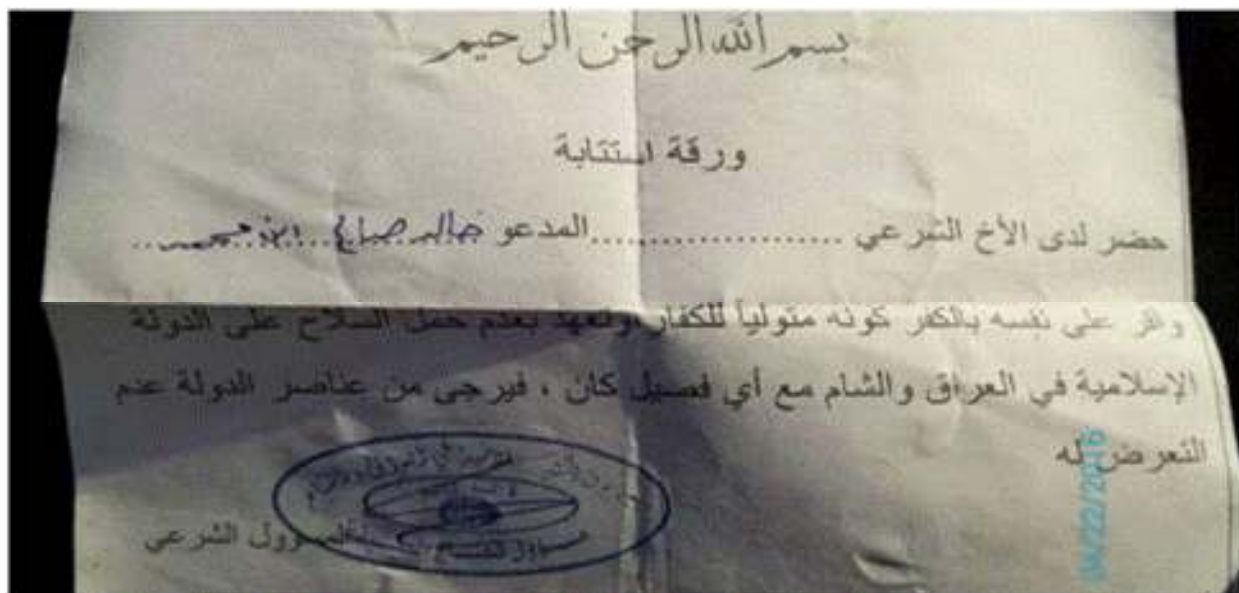 بسم الله الرحمن الرحيم
ورقة استتابة
حضر لدى الأخ الشرعي ....................المدعو خالد صباغ ابن محمد
واقر على نفسه بالكفر كونه متولياً للكفار وتعهد بعدم حمل السلاح على الدولة
الإسلامية في العراق والشام مع أي فصيل كان ، فيرجى من عناصر الدولة عدم
التعرض له
المسؤول الشرعي